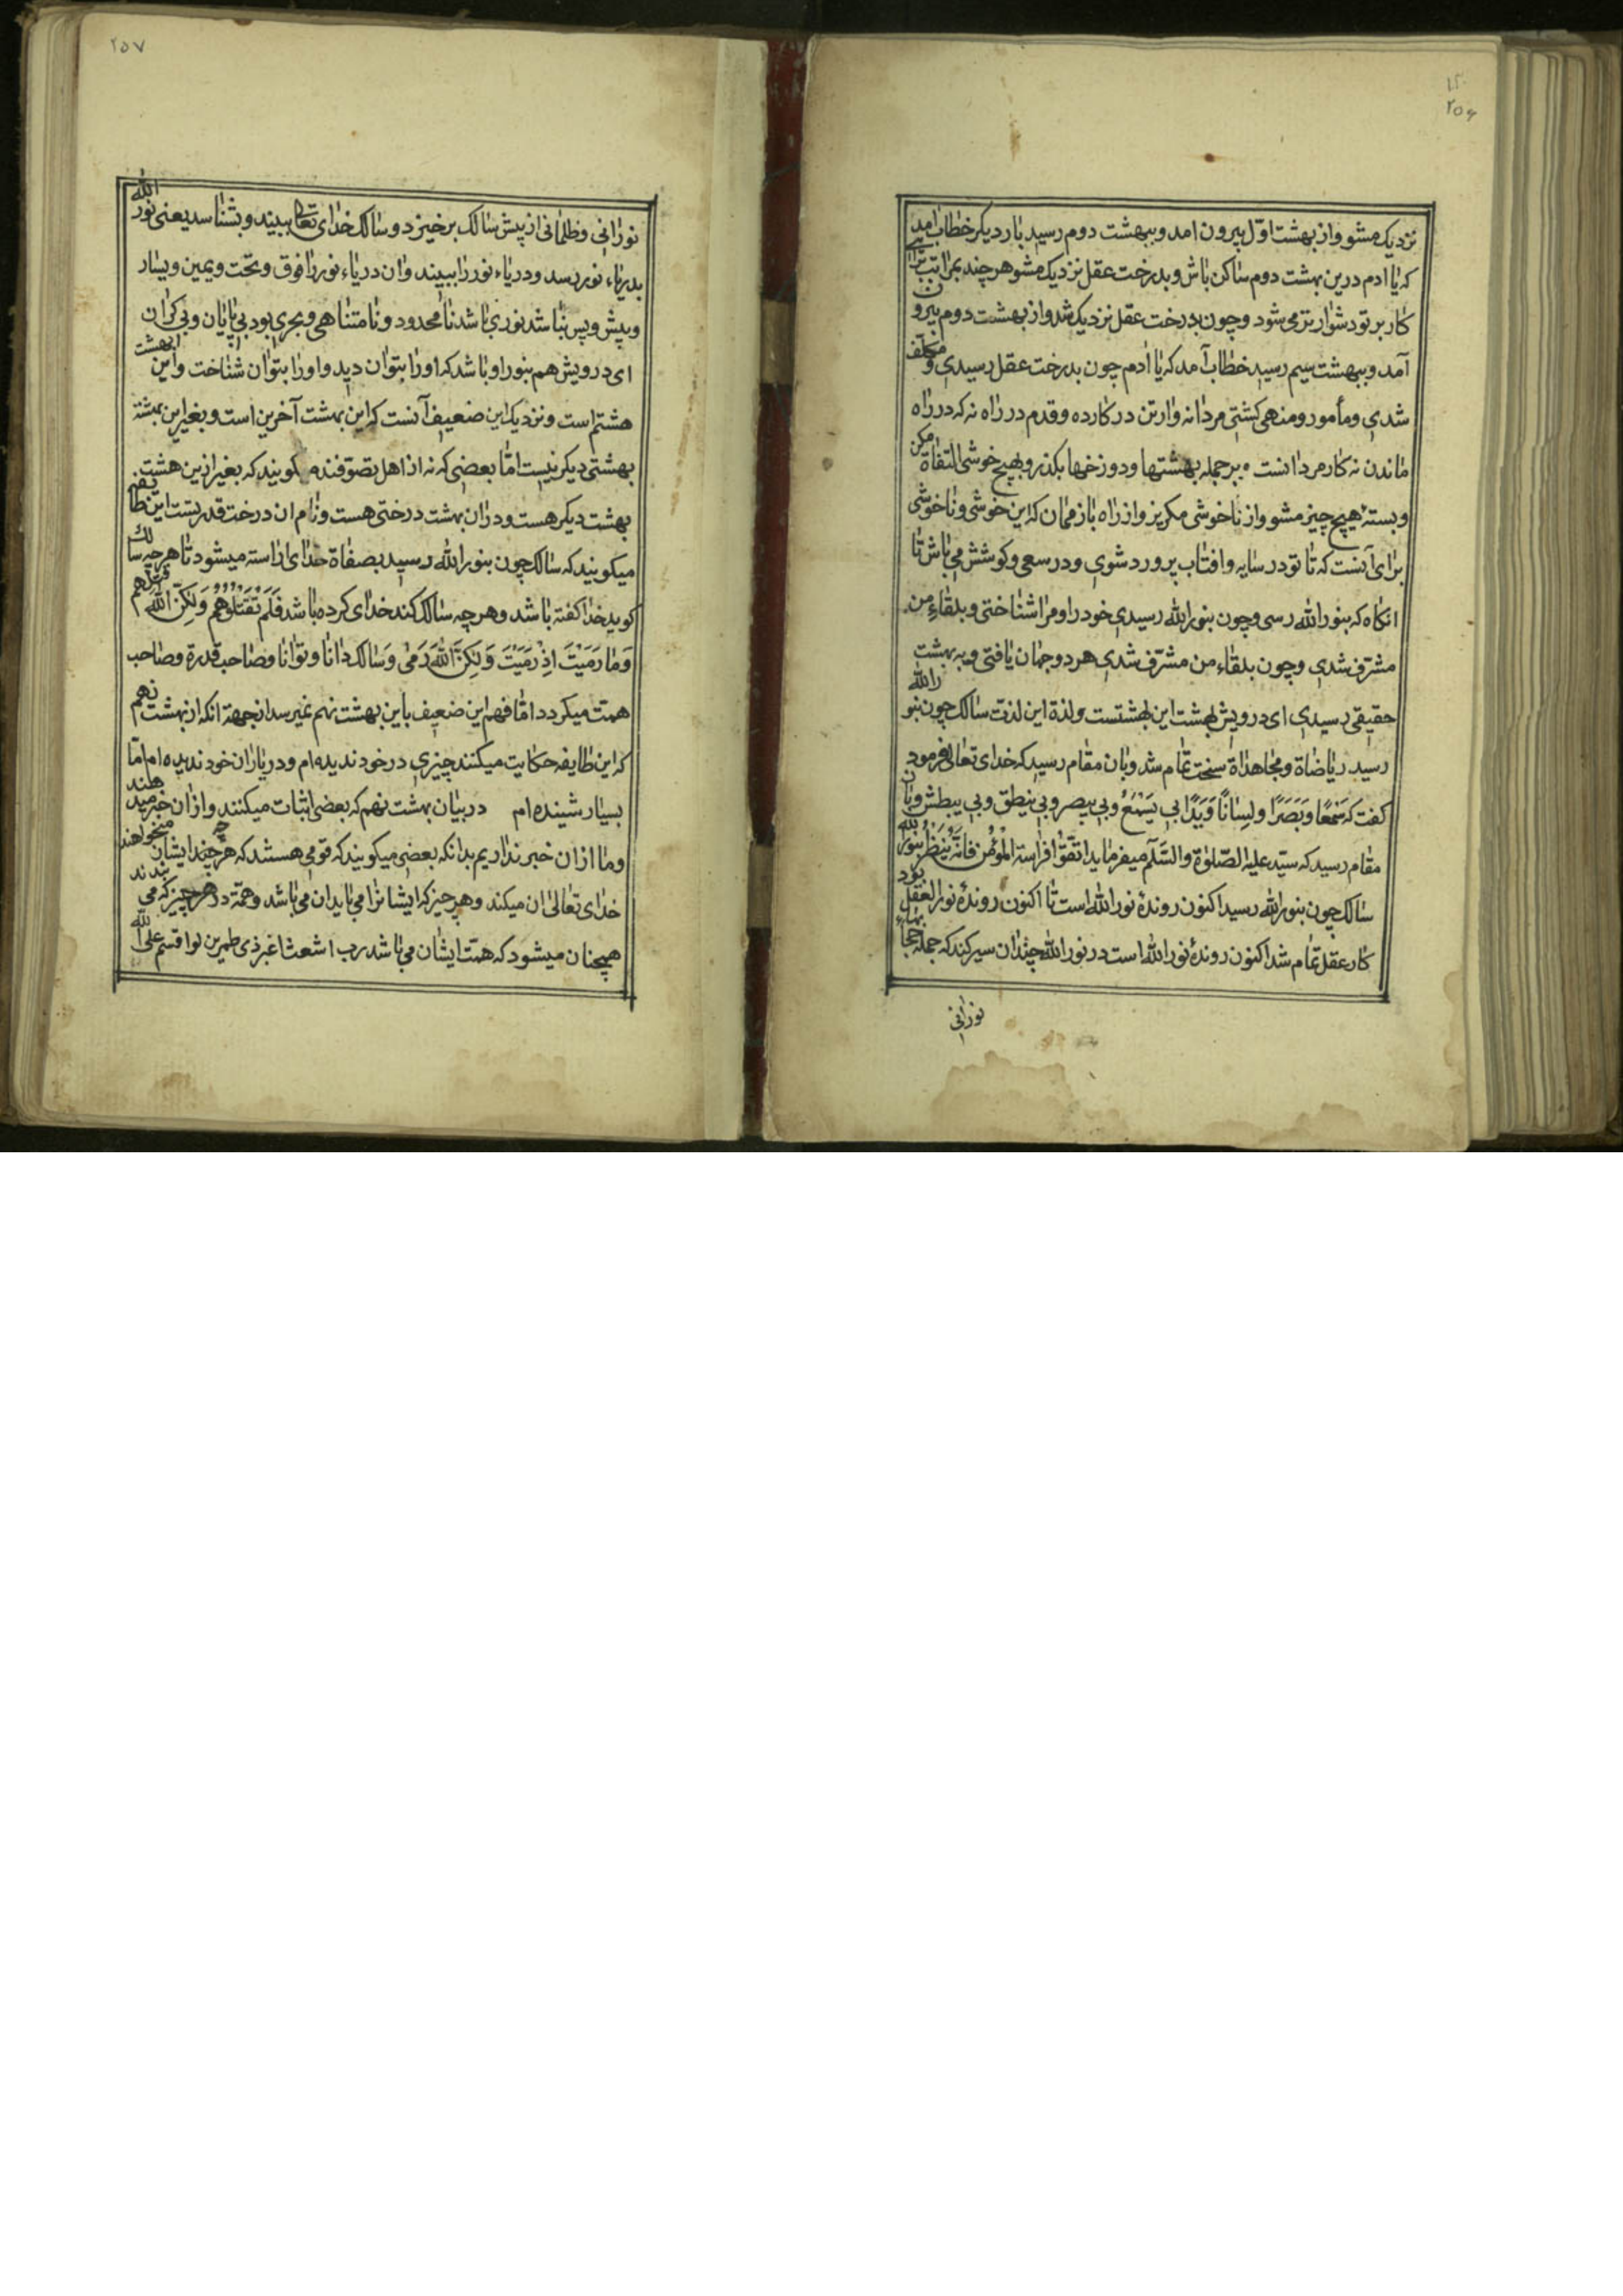 ٢٥٦
نزدیک مشو واز بهشت اوّل بیرون امد وببهشت دوم رسید بار دیکر خطاب امد
که یا ادم درین بهشت دوم ساکن باش و بدرخت عقل نزدیک مشو هرچند بمراتب برائے
کار بر تو دشوارتر می شود وچون بدرخت عقل نزدیک شد واز بهشت دوم بیرون
آمد وببهشت سیم رسید خطاب آمد که یا ادم چون بدرخت عقل رسیدی ومکلّف
شدی ومأمور ومنهی کشتی مردانه وارتن در کارده وقدم در راه نه که در راه
ماندن نه کار مردانست وبر جمله بهشتها ودوزخها بکذر وبهیچ خوشی التفاة مکن
وبستهٔ هیچ چیز مشو واز ناخوشی مکریز واز راه باز ممان که این خوشی وناخوشی
برای آنست که تا تو در سایه وافتاب پرورد شوی ودر سعی وکوشش می باش تا
انکاه که بنور الله رسی وچون بنور الله رسیدی خود را ومرا شناختی وبلقاء من
مشرّف شدی وچون بلقاء من مشرّف شدی هر دو جهان یافتی وبه بهشت
حقیقی رسیدی ای درویش بهشت این بهشتست ولذة این لذت سالک چون بنور الله
رسید ریاضاة ومجاهداة سخت تمام شد وبان مقام رسید که خدای تعالی فرمود
کفت که سَمْعًا وَبَصَرًا ولِسانًا وَیَدًا بی یَسْمَعُ وبی یبصر وبی ینطق وبی یبطش وبان
مقام رسید که سیّد علیه الصّلوٰة والسَّلٰم میفرماید اتقوا فراسة المؤمن فانّه یَنظُرُ بنور الله
سالک چون بنور الله رسید اکنون روندهٔ نور الله است تا اکنون روندهٔ نور العقل بود
کار عقل تمام شد اکنون روندهٔ نور الله است در نور الله چندان سیر کند که جمله حجابهاء
نورانی
٢٥٧
نورانی وظلمانی از پیش سالک برخیزد وسالک خدای تعالی ببیند وبشناسد یعنی نور الله
بدریاء نور رسد ودریاء نور را ببیند وان دریاء نور را فوق وتحت ویمین ویسار
وپیش وپس نباشد نوری باشد نامحدود ونامتناهی وبحری بود بی پایان وبی کران
ای درویش هم بنور او باشد که او را بتوان دید واو را بتوان شناخت واین بهشت
هشتم است ونزدیک این ضعیف آنست که این بهشت آخرین است وبغیر این بهشت
بهشتی دیکر نیست امّا بعضی که نه از اهل تصوّفند کویند که بغیر ازین هشت
بهشت دیکر هست ودران بهشت درختی هست ونام ان درخت قدرتست این طایفه
میکویند که سالک چون بنور الله رسید بصفاة خدای اراسته میشود تا هرچه سالک
کوید خدا کفته باشد وهرچه سالک کند خدای کرده باشد فَلَمْ تَقْتُلُوهُمْ وَلٰکِنَّ اللّٰهَ قتلهم
وَمٰا رَمَیْتَ اِذْ رَمَیْتَ وَلٰکِنَّ اللّٰهَ رَمٰی وَسالک دانا وتوانا وصاحب قدرة وصاحب
همت میکردد امّا فهم این ضعیف باین بهشت نهم نمیرسد از جهة انکه از بهشت نهم
که این طایفه حکایت میکنند چیزی در خود ندیده ام ودر یاران خود ندیده ام امّا
بسیار شینده ام در بیان بهشت نهم که بعضی اثبات میکنند وازان خبر میدهند
وما ازان خبر نداریم بدانکه بعضی میکویند که قومی هستند که هرچه ایشان میخواهند
خدای تعالی ان میکند وهر چیز که ایشانرا می باید ان می باشد وهمّة در هر چیز که می بندند
همچنان میشود که همّت ایشان می باشد رب اشعث اغبر ذی طمرین لو اقسم علی الله